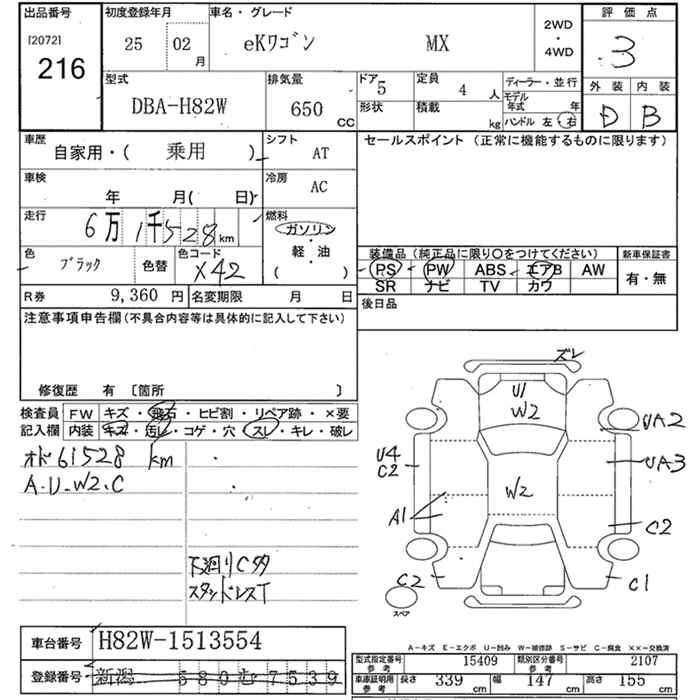 出品番号 [2072] 216
初度登録年月 25 02 月
車名・グレード eKワゴン MX
2WD・4WD
評価点 3
外装 D 内装 B
型式 DBA-H82W
排気量 650 CC
ドア 5 形状
定員 4 人 積載 kg
ディーラー・並行
モデル年式 年
ハンドル 左・右
車歴 自家用・( 乗用 )
シフト AT
車検 年 月( 日)
冷房 AC
走行 6万1千528 km
燃料 ガソリン・軽油・( )
色 ブラック 色替 色コード X42
R券 9,360 円 名変期限 月 日
セールスポイント (正常に機能するものに限ります)
装備品(純正品に限り○をつけてください)
PS PW ABS エアB AW
SR ナビ TV カワ
新車保証書 有・無
後日品
注意事項申告欄(不具合内容等は具体的に記入して下さい)
修復歴 有 〔箇所 〕
検査員記入欄
FW キズ・飛石・ヒビ割・リペア跡・×要
内装 キズ・汚レ・コゲ・穴・スレ・キレ・破レ
オド61528 km
A-U-W2.C
下廻りC多
スタッドレスT
ズレ
U1
W2
UA2
U4
C2
UA3
W2
A1
C2
C2
C1
スペア
A-キズ E-エクボ U-凹み W-補修跡 S-サビ C-腐食 ××-交換済
車台番号 H82W-1513554
登録番号 新潟 580 む 7539
型式指定番号 参考 15409 類別区分番号 参考 2107
車庫証明用 参考 長さ 339 cm 幅 147 cm 高さ 155 cm